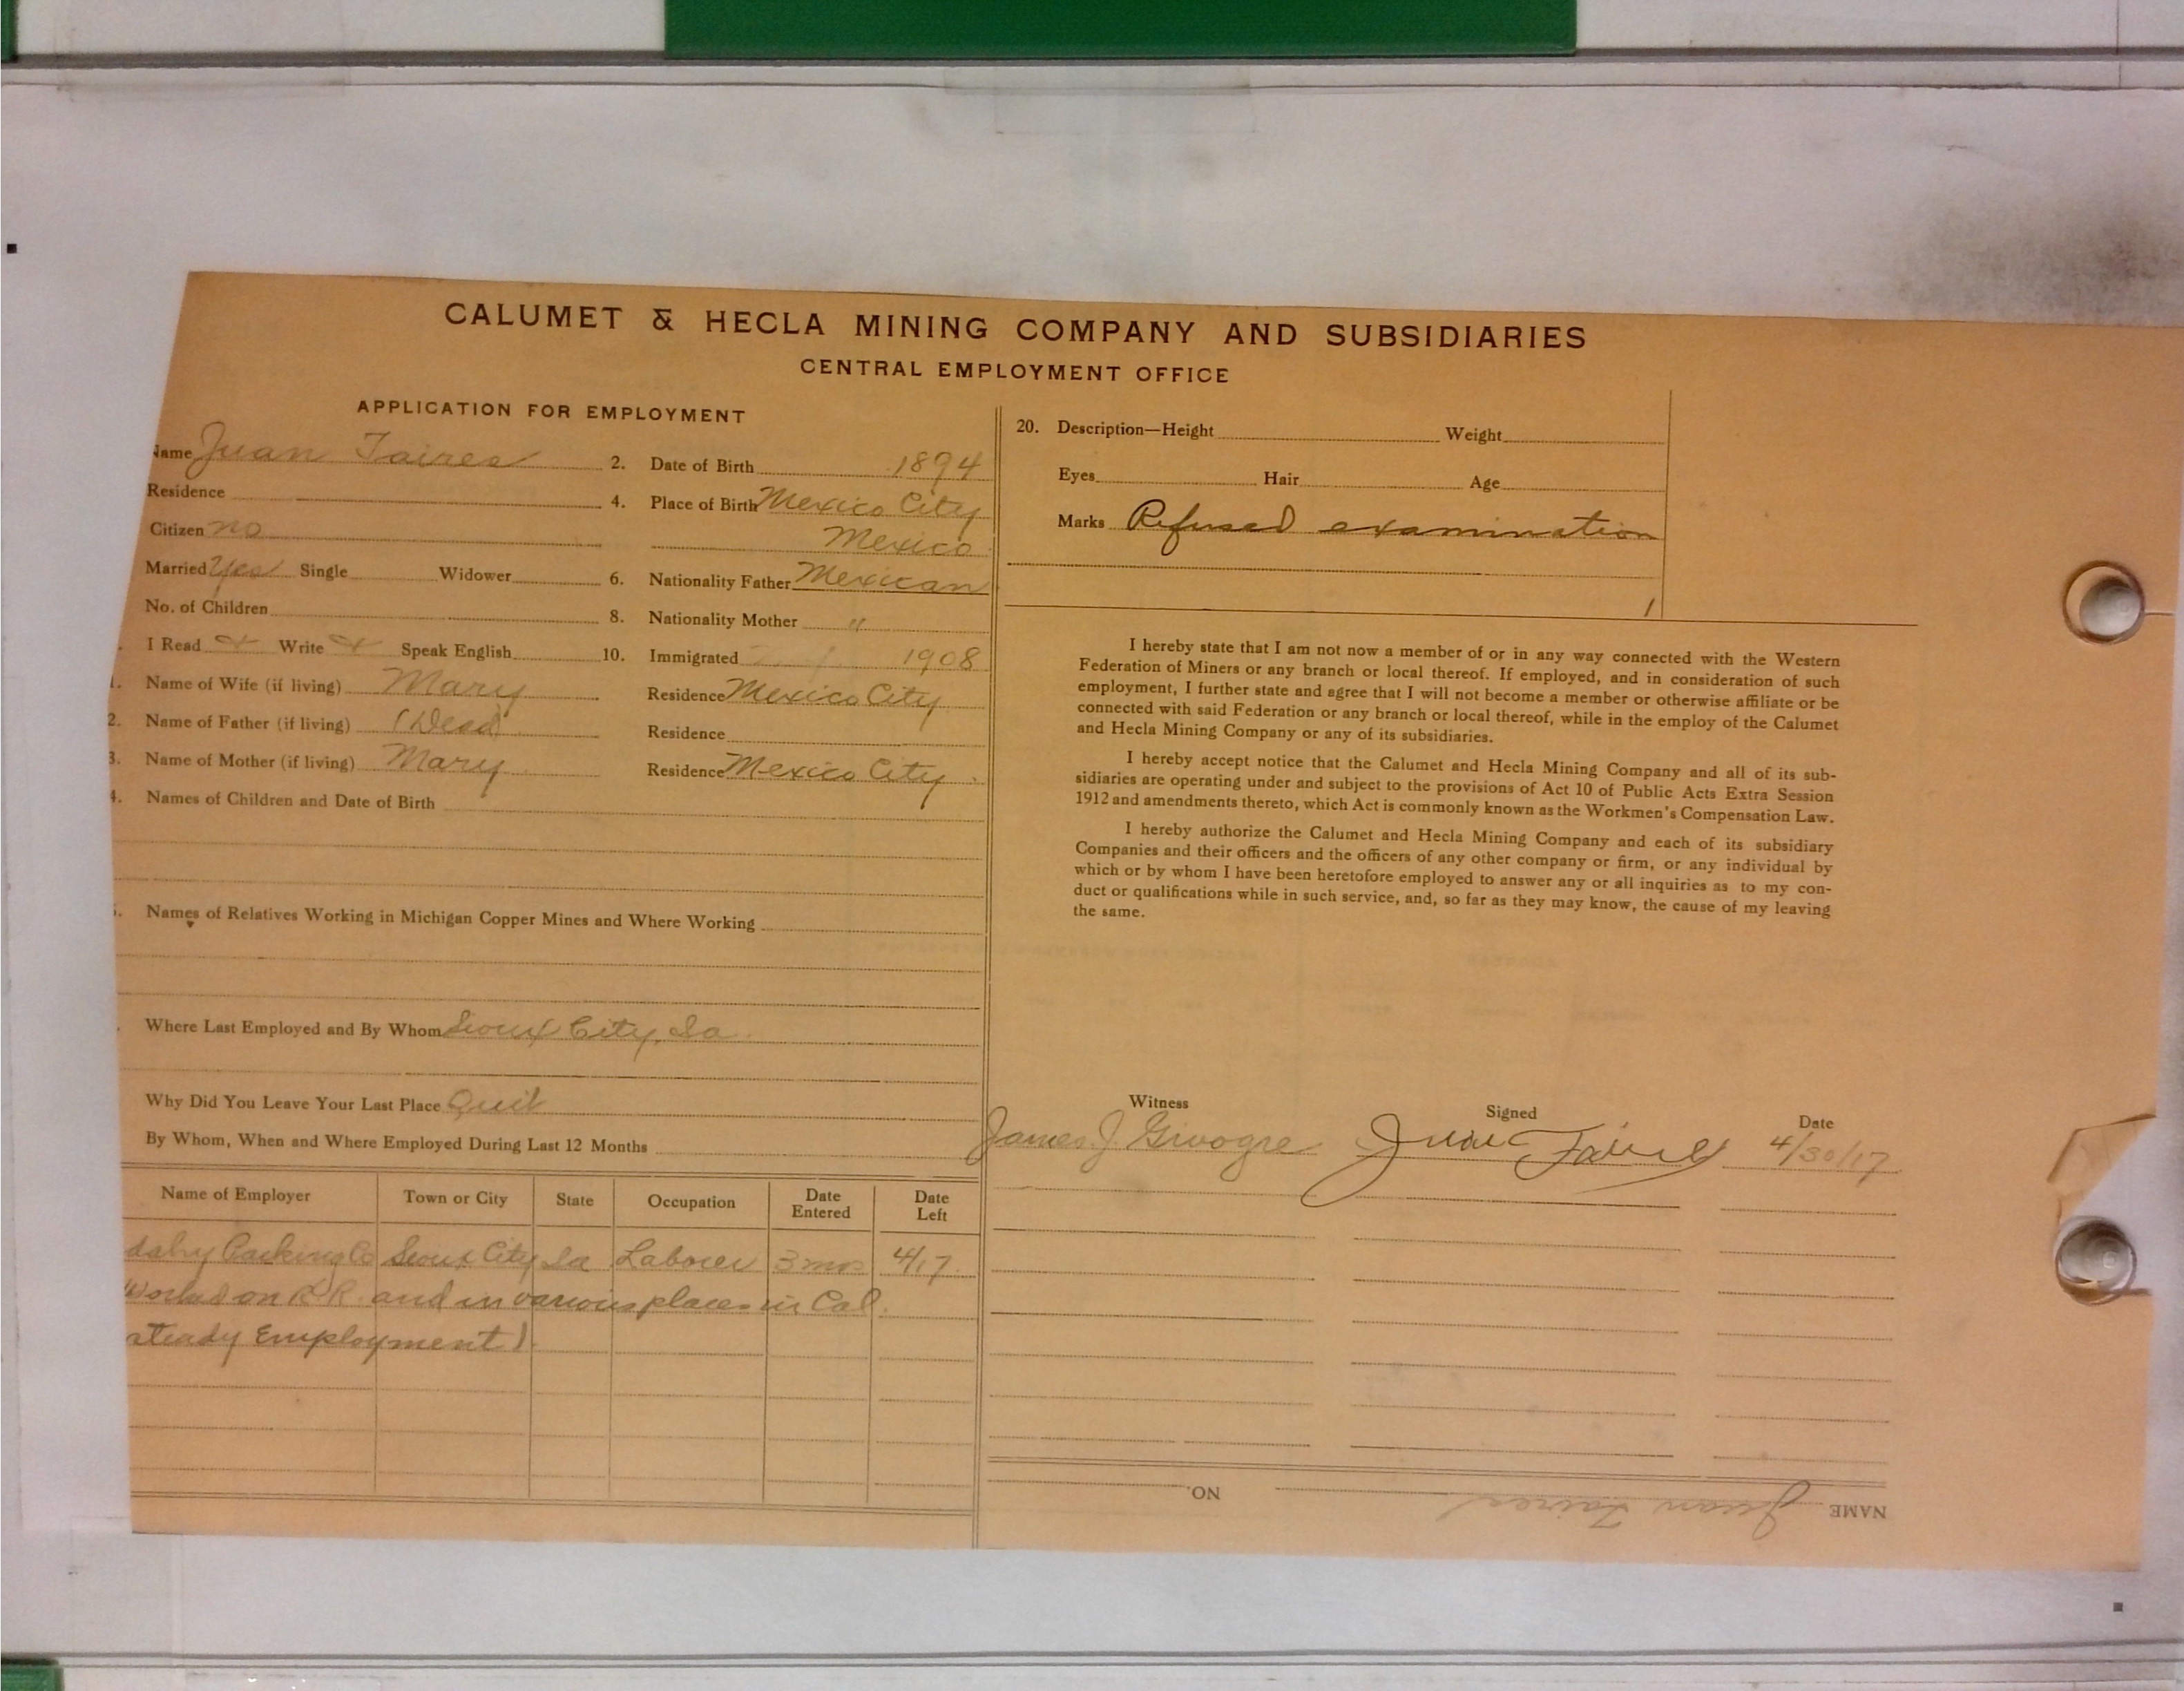 CALUMET & HECLA MINING COMPANY AND SUBSIDIARIES
CENTRAL EMPLOYMENT OFFICE
APPLICATION FOR EMPLOYMENT
Name Juan Taires 2. Date of Birth 1894
Residence 4. Place of Birth Mexico City
Citizen no Mexico
Married Yes Single Widower 6. Nationality Father Mexican
No. of Children 8. Nationality Mother "
I Read Write Speak English 10. Immigrated 1908
1. Name of Wife (if living) Mary Residence Mexico City
2. Name of Father (if living) (Dead) Residence
3. Name of Mother (if living) Mary Residence Mexico City
4. Names of Children and Date of Birth
Names of Relatives Working in Michigan Copper Mines and Where Working
Where Last Employed and By Whom Sioux City, Ia
Why Did You Leave Your Last Place Quit
By Whom, When and Where Employed During Last 12 Months
Name of Employer Town or City State Occupation Date Entered Date Left
Packing Co Sioux City Ia Laborer 3 mos 4/17
Worked on R.R. and in various places in Cal.
steady Employment).
20. Description—Height Weight
Eyes Hair Age
Marks Refused examination
I hereby state that I am not now a member of or in any way connected with the Western
Federation of Miners or any branch or local thereof. If employed, and in consideration of such
employment, I further state and agree that I will not become a member or otherwise affiliate or be
connected with said Federation or any branch or local thereof, while in the employ of the Calumet
and Hecla Mining Company or any of its subsidiaries.
I hereby accept notice that the Calumet and Hecla Mining Company and all of its sub-
sidiaries are operating under and subject to the provisions of Act 10 of Public Acts Extra Session
1912 and amendments thereto, which Act is commonly known as the Workmen's Compensation Law.
I hereby authorize the Calumet and Hecla Mining Company and each of its subsidiary
Companies and their officers and the officers of any other company or firm, or any individual by
which or by whom I have been heretofore employed to answer any or all inquiries as to my con-
duct or qualifications while in such service, and, so far as they may know, the cause of my leaving
the same.
Witness Signed Date
James J. Juan Taires 4/30/17
NAME Juan Taires NO.